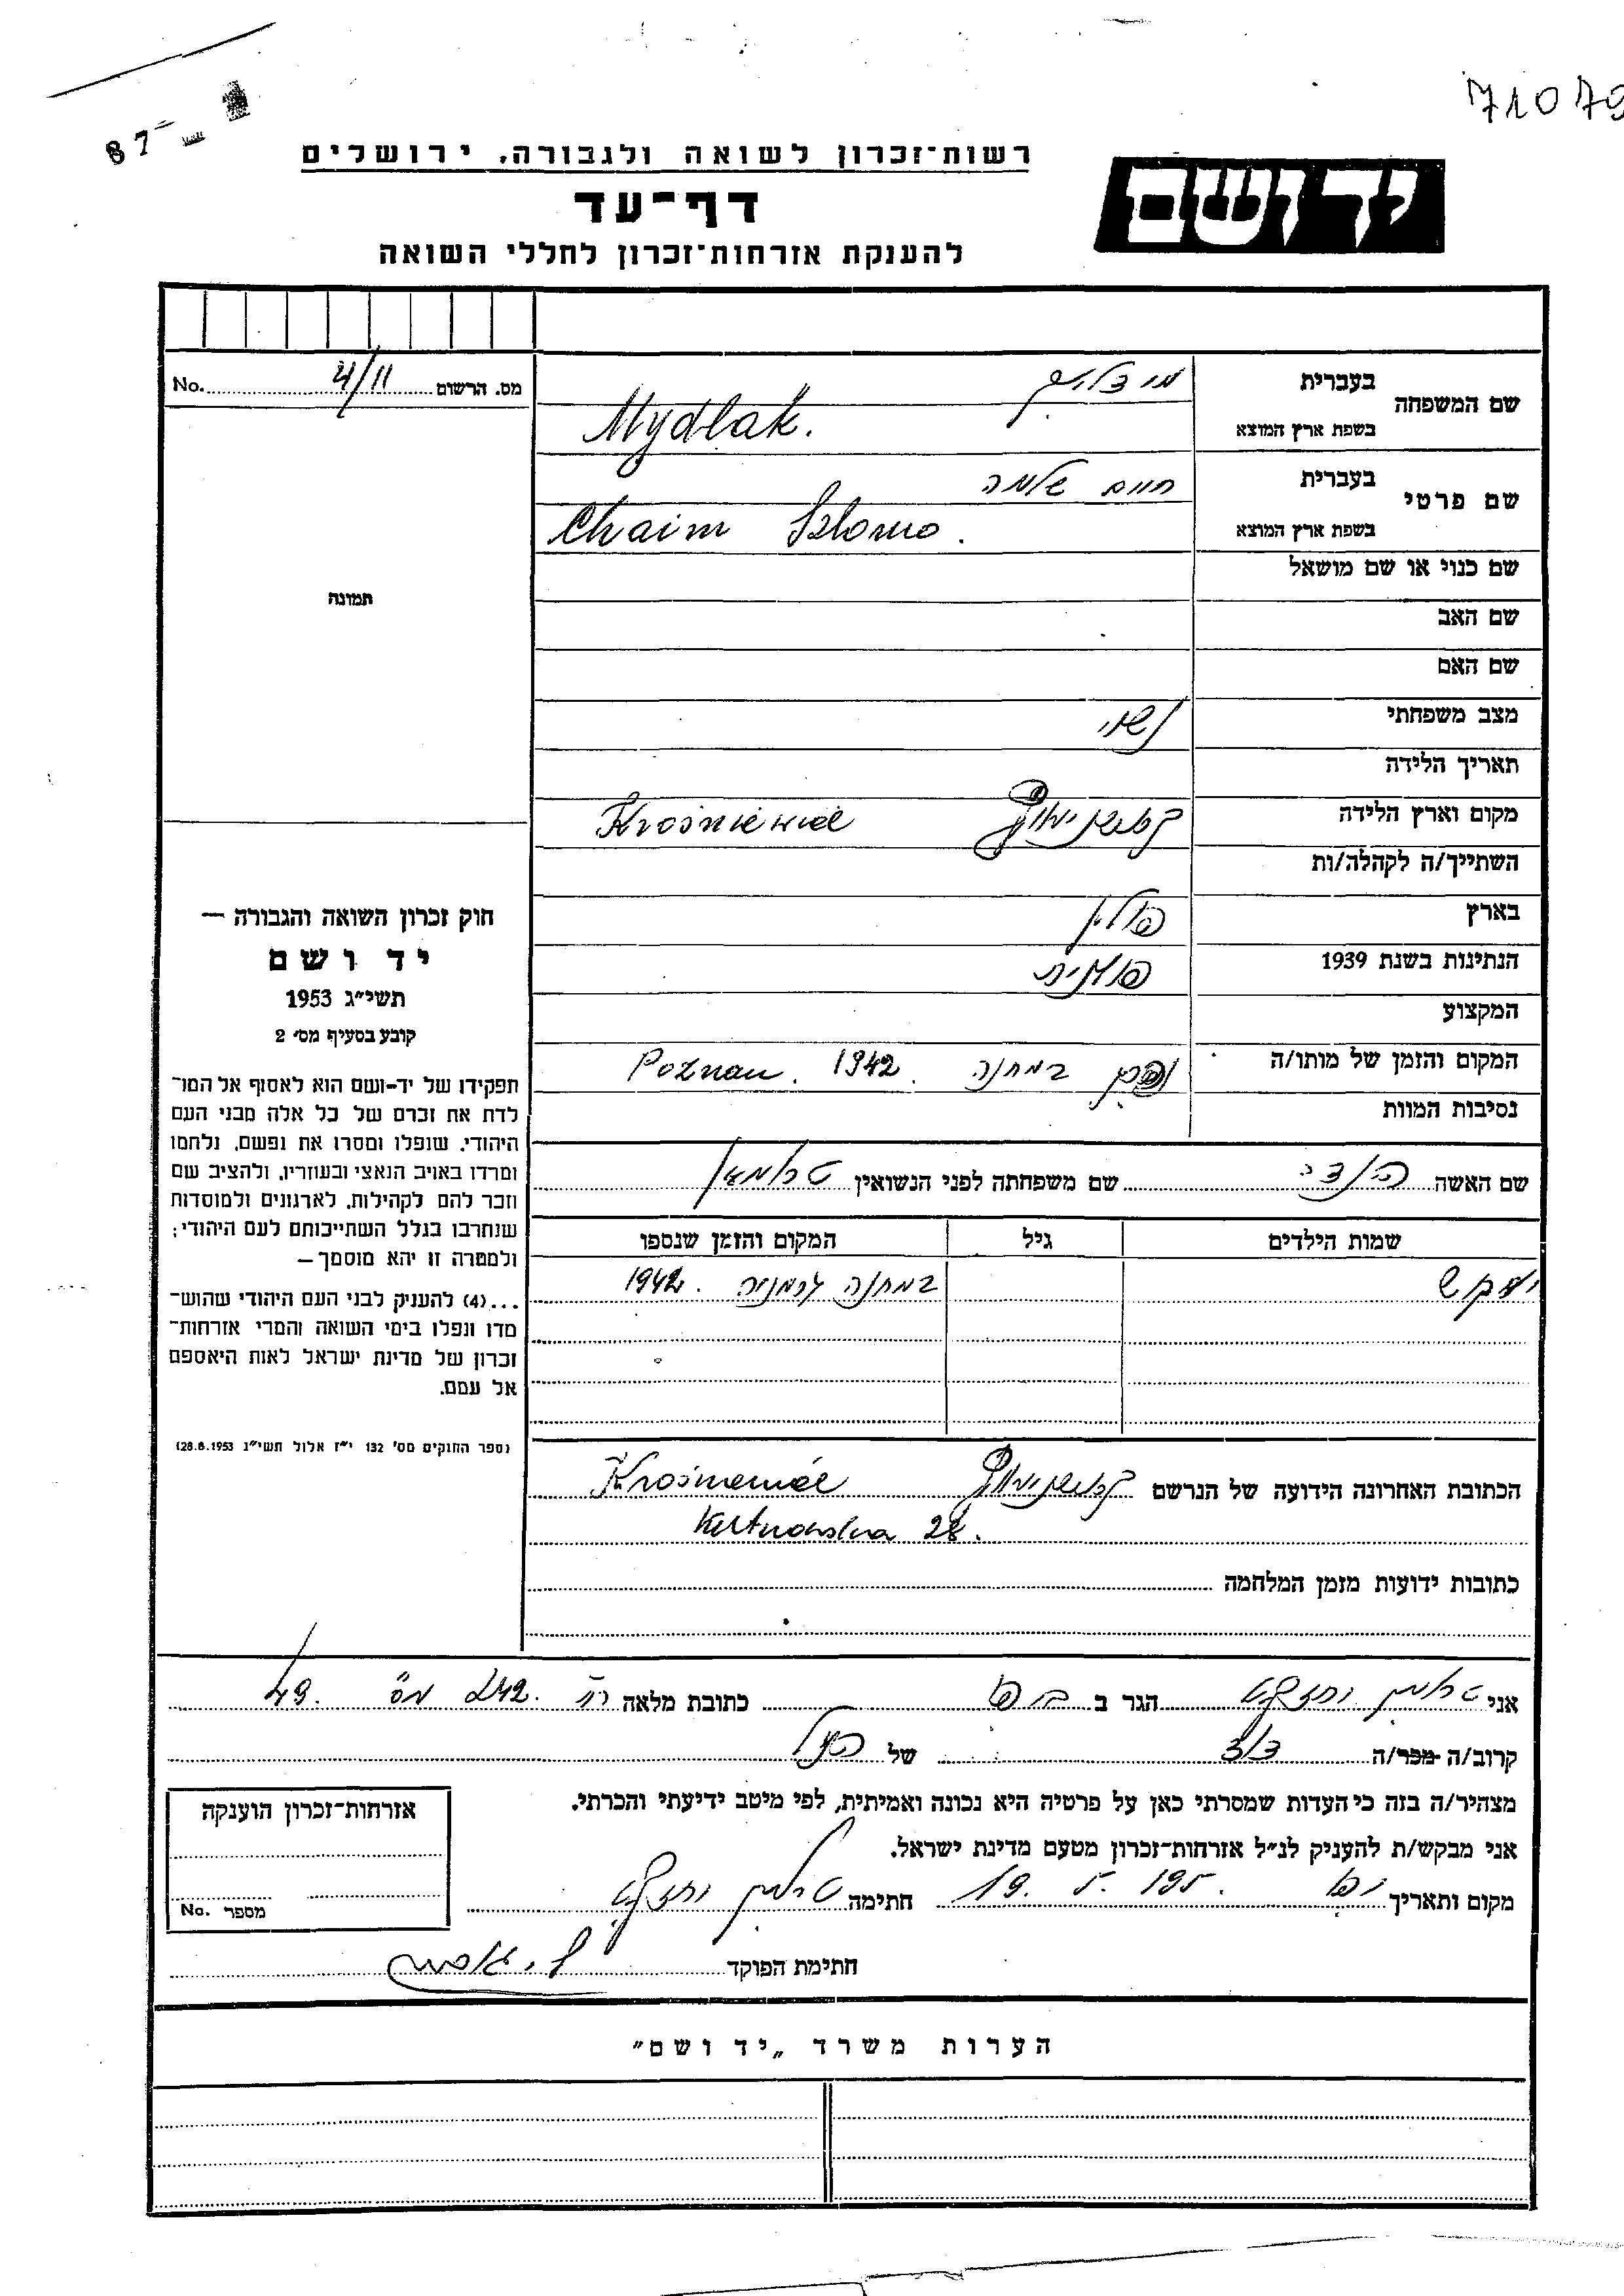 71079
87
רשות־זכרון לשואה ולגבורה, ירושלים
יד ושם
דף־עד
להענקת אזרחות־זכרון לחללי השואה
מס. הרשום 4/11 No.
שם המשפחה
בעברית
בשפת ארץ המוצא Mydlak.
שם פרטי
בעברית חיים שלמה
בשפת ארץ המוצא Chaim Szlomo.
שם כנוי או שם מושאל
שם האב
שם האם
מצב משפחתי נשוי
תאריך הלידה
מקום וארץ הלידה Krośniewice
השתייך/ה לקהלה/ות
בארץ פולין
הנתינות בשנת 1939 פולנית
המקצוע
המקום והזמן של מותו/ה במחנה Poznan. 1942.
נסיבות המוות
שם האשה הינדה שם משפחתה לפני הנשואין
שמות הילדים גיל המקום והזמן שנספו
במחנה גרמניה 1942.
הכתובת האחרונה הידועה של הנרשם
Kutnowska 28.
כתובות ידועות מזמן המלחמה
תמונה
חוק זכרון השואה והגבורה —
יד ושם
תשי״ג 1953
קובע בסעיף מס׳ 2
תפקידו של יד-ושם הוא לאסוף אל המו־
לדת את זכרם של כל אלה מבני העם
היהודי, שנפלו ומסרו את נפשם, נלחמו
ומרדו באויב הנאצי ובעוזריו, ולהציב שם
וזכר להם לקהילות, לארגונים ולמוסדות
שנחרבו בגלל השתייכותם לעם היהודי;
ולמטרה זו יהא מוסמך —
...(4) להעניק לבני העם היהודי שהוש־
מדו ונפלו בימי השואה והמרי אזרחות־
זכרון של מדינת ישראל לאות היאספם
אל עמם.
(ספר החוקים מס׳ 132 י״ז אלול תשי״ג 28.8.1953)
אני הגר ב כתובת מלאה רח׳ 242. מס׳ 49.
קרוב/ה מכר/ה של
מצהיר/ה בזה כי העדות שמסרתי כאן על פרטיה היא נכונה ואמיתית, לפי מיטב ידיעתי והכרתי.
אני מבקש/ת להעניק לנ״ל אזרחות־זכרון מטעם מדינת ישראל.
מקום ותאריך יפו חתימה
חתימת הפוקד
אזרחות־זכרון הוענקה
מספר No.
הערות משרד „יד ושם״